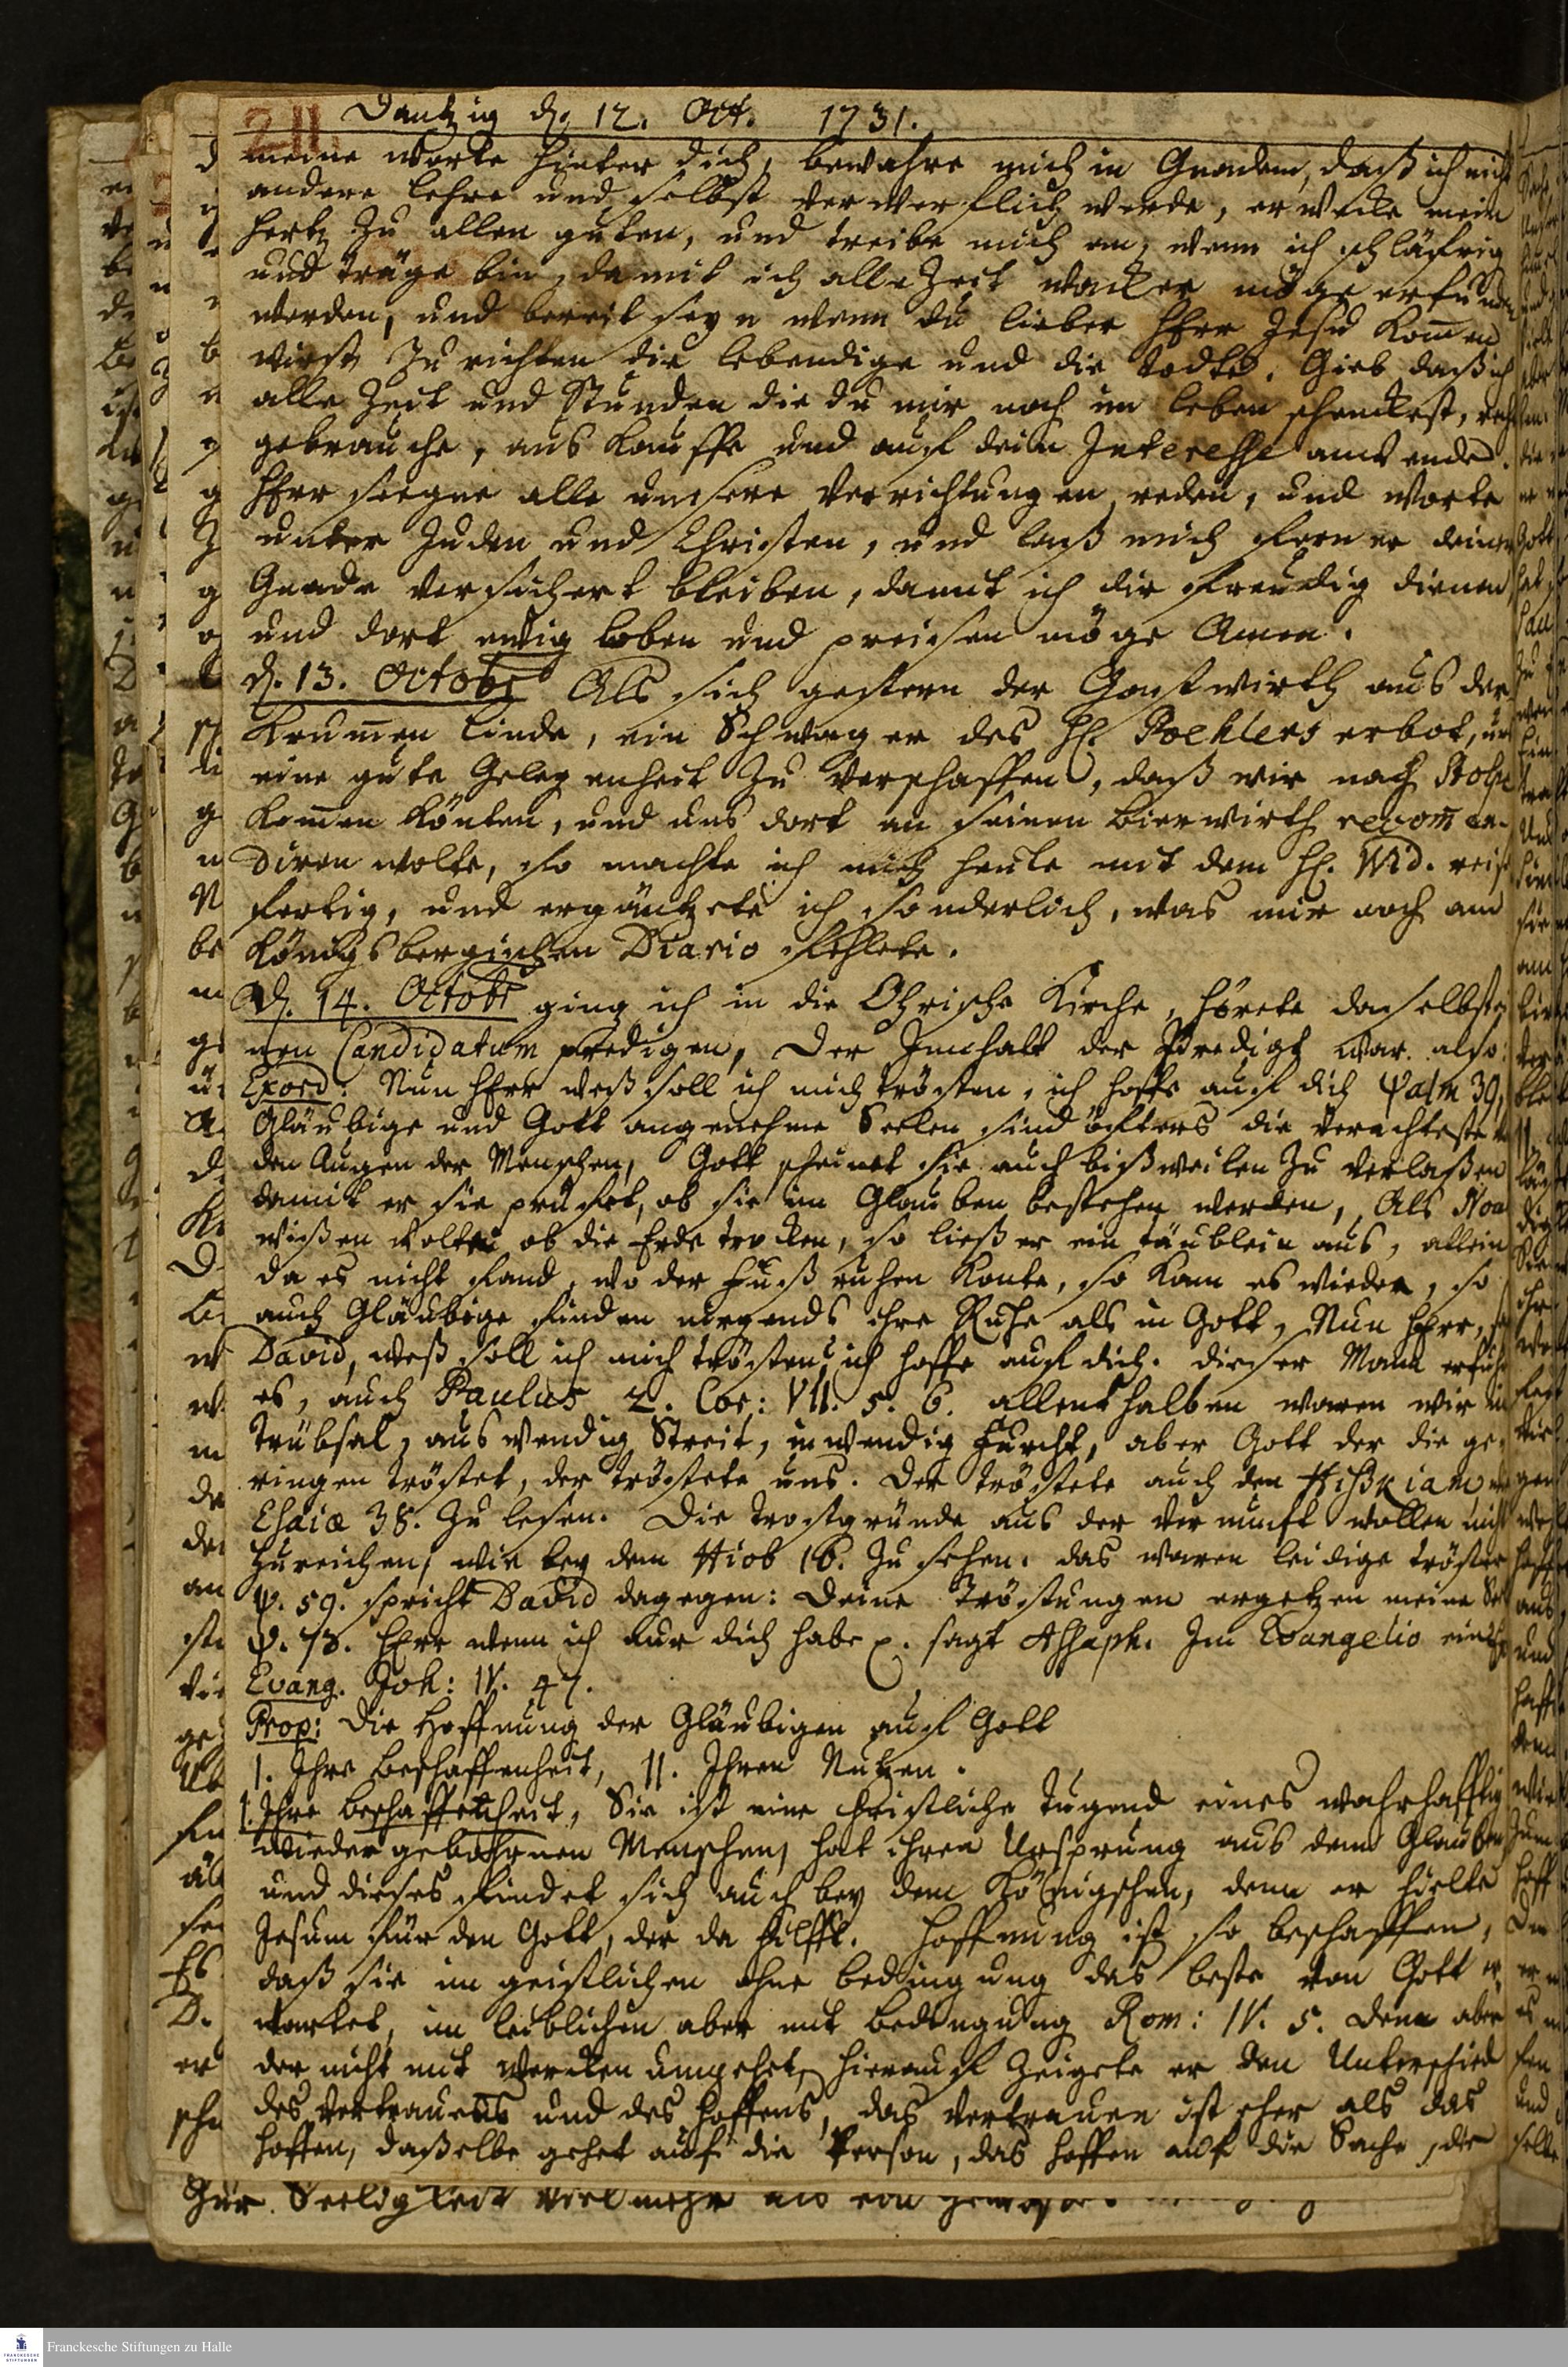 211.
Dantzig d. 12. Oct. 1731.
meine Worte hinter dich, bewahre mich in Gnaden, daß ich nicht
andere lehre und selbst verwerflich werde, erwecke mein
Hertz zu allen guten, und treibe mich an, wenn ich schläfrig
und träge bin, damit ich alle Zeit wacker möge erfunden
werden, und bereit seyn wenn du lieber HErr Jesu kom̄en
wirst zu richten die lebendige und die todte. Gieb daß ich
alle Zeit und Stunden die du mir noch im leben schenckest, recht
gebrauche, aus kauffe und auf dein Interesse anwende.
HErr seegne alle unsere Verrichtungen, reden, und Worte
unter Juden und Christen, und laß mich ferner deiner
Gnade versichert bleiben, damit ich dir freudig dienen
und dort ewig loben und preisen möge Amen.
d. 13. Octobr Als sich gestern der Gastwirth aus der
Krum̄en Linde, ein Schwager des H. Poehlers erbot, uns
eine gute Gelegenheit zu verschaffen, daß wir nach Stolpe
kom̄en könten, und uns dort an seinen Bierwirth recom̄en-
diren wolte, so machte ich mich heute mit dem H. Wid. reise
fertig, und ergäntzete ich sonderlich, was mir noch am
Königsbergischen Diario fehlete.
d. 14. Octobr ging ich in die Ohrische Kirche, hörete daselbst ei
nen Candidatum predigen, Der Innhalt der Predigt war also:
Exord: Nun HErr weß soll ich mich trösten, ich hoffe auf dich Psalm 39,
Gläubige und Gott angenehme Seelen sind öfters die verachteste in
den Augen der Menschen, Gott scheinet sie auch bißweilen zu verlaßen
damit er sie prüfet, ob sie im Glauben bestehen werden, Als Noa
wißen wolte ob die Erde trocken, so ließ er ein täublein aus, allein
da es nicht fand, wo der Fuß ruhen konte, so kam es wieder, so
auch Gläubige finden nirgends ihre Ruhe als in Gott, Nun HErr,
David, weß soll ich mich trösten? ich hoffe auf dich. dieser Mann erfuhr
es, auch Paulus 2. Cor: VII. 5. 6. allenthalben waren wir in
Trübsal, auswendig Streit, inwendig Furcht, aber Gott der die ge-
ringen tröstet, der tröstete uns. Der tröstete auch den Hißkiam
Esaiæ 38. zu lesen. Die trostgründe aus der Vernunft wollen nicht
zureichen, wie bey dem Hiob 16. zu sehen. das waren leidige tröster
ψ. 59. spricht David dagegen: Deine Tröstungen ergetzen meine Seel
ψ. 73. HErr wenn ich nur dich habe p. sagt Assaph. Im Evangelio
Evang. Joh: IV. 47.
Prop: Die Hoffnung der Gläubigen auf Gott
1. Ihre Beschaffenheit, II. Ihren Nutzen.
1. Ihre Beschaffenheit, Sie ist eine christliche Tugend eines wahrhafftig
wiedergebohrnen Menschen, hat ihren Ursprung aus dem Glauben
und dieses findet sich auch bey dem Königschen, denn er hielte
Jesum für den Gott, der da hilfft. Hoffnung ist so beschaffen,
daß sie im geistlichen ohne bedingung das beste von Gott er-
wartet, im leiblichen aber mit bedingung Rom: IV. 5. Dem aber
der nicht mit Wercken umgehet, hierauf zeigete er den Unterschied
des Vertrauens und des Hoffens, das Vertrauen ist eher als das
hoffen, daßelbe gehet auf die Person, das hoffen auf die Sache, die
zur Seeligkeit viel mehr als
Franckesche Stiftungen zu Halle